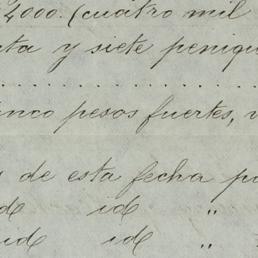 2000. (cuatro mil
ta y siete peniqu
inco pesos fuertes, v
s de esta fecha pa
id id "
id id "